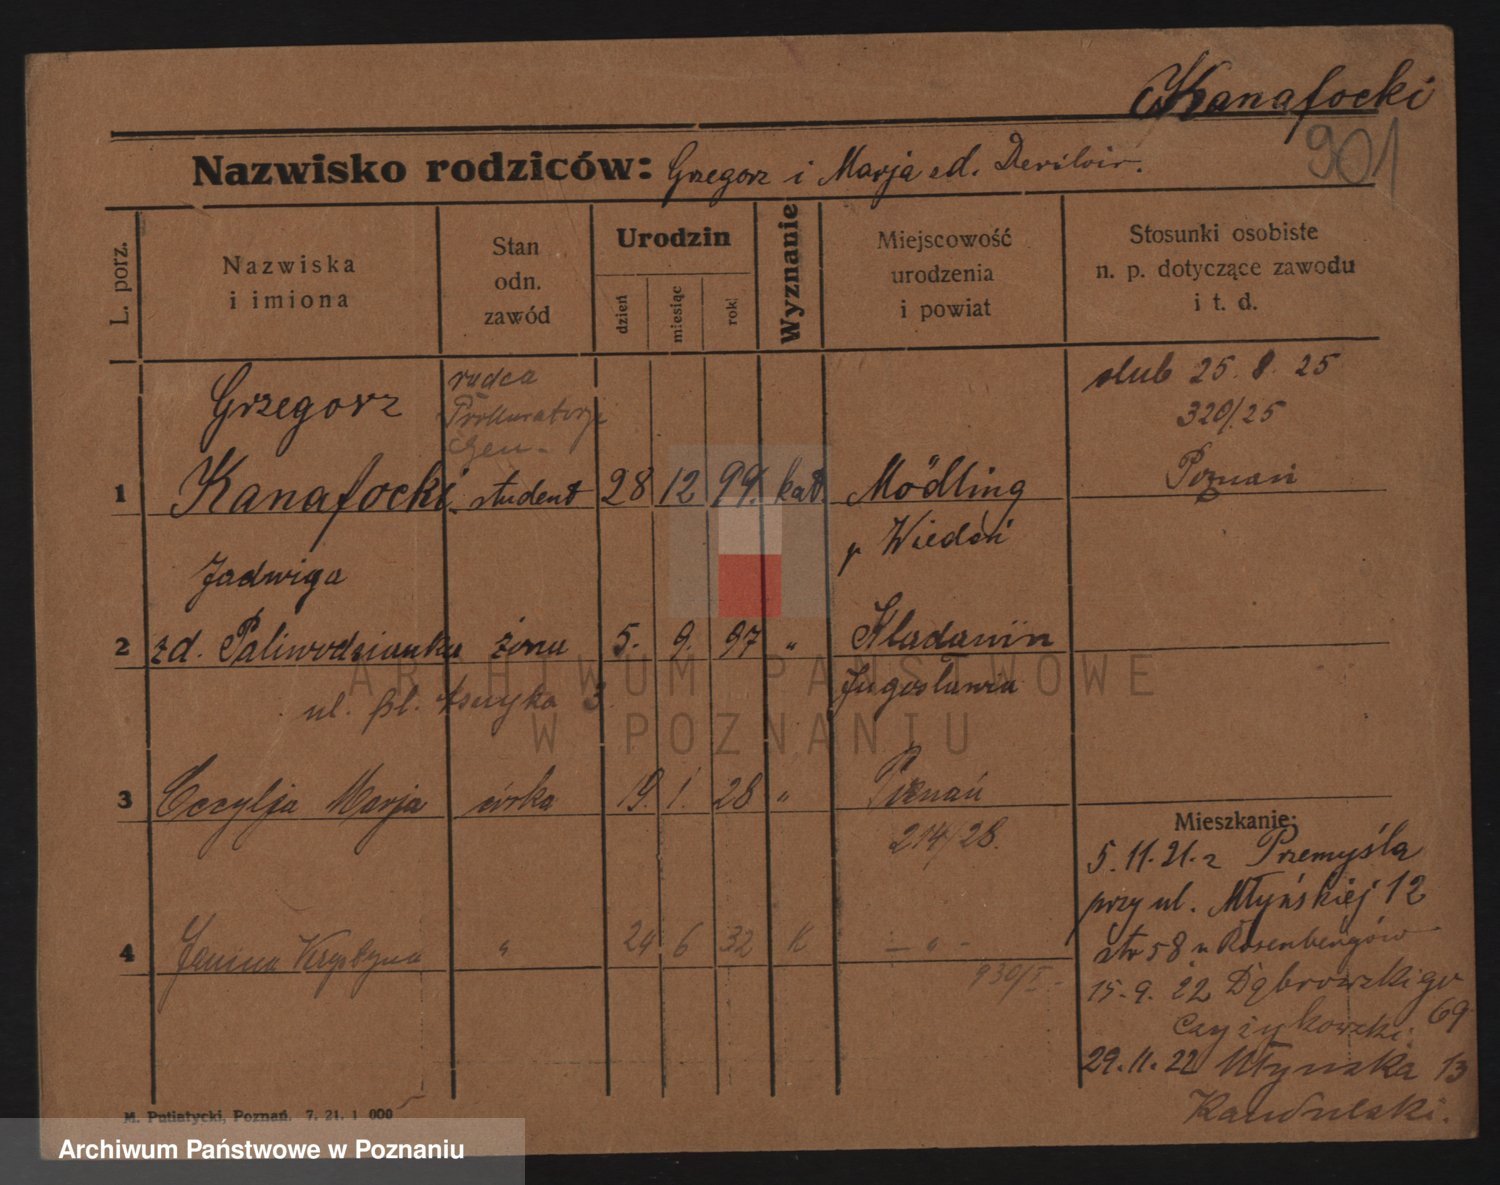 Kanafocki
901
Nazwisko rodziców: Grzegorz i Marja zd.
L. porz.
Nazwiska i imiona
Stan odn. zawód
Urodzin
dzień miesiąc rok
Wyznanie
Miejscowość urodzenia i powiat
Stosunki osobiste n. p. dotyczące zawodu i t. d.
radca
Prokuratorji
Gen.
Grzegorz
1 Kanafocki student 28 12 99. kat Mödling
p Wiedeń
ślub 25. 8. 25
320/25
Poznań
Jadwiga
2 zd. Paliwodzianka żona 5. 9. 97 "
Jugosławia
ul. pl. Asnyka 3
3 Cecylja Marja córka 19. 1. 28 " Poznań
214/28.
4 Janina Krystyna " 24 6 32 K — " —
930/I -
Mieszkanie:
5. 11. 21. z Przemyśla
przy ul. Młyńskiej 12
u Rosenbergów
15. 9. 22 Dąbrowskiego 69
Czyżykowski.
29. 11. 22 Młyńska 13
Kandulski.
M. Putiatycki, Poznań. 7. 21. 1 000
ARCHIWUM PAŃSTWOWE
W POZNANIU
Archiwum Państwowe w Poznaniu